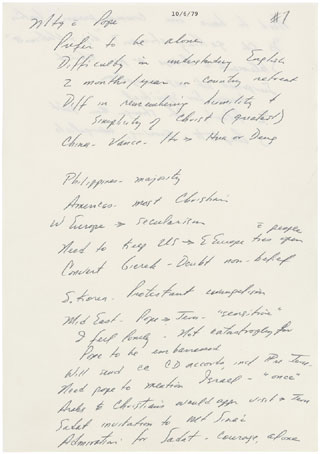 10/6/79
#1
Mtg c Pope
Prefer to be alone
Difficulty in understanding English
2 months/year in country retreat
Diff in remembering humility &
simplicity of Christ (greatest)
China - Vance - Its Hua or Deng
Philippines - majority
Americas - most Christian
W Europe → secularism
c people
Need to keep US → E Europe ties open
Convert Gierek - Doubt non-belief
S. Korea - Protestant
Mid East - Pope → Jerus - "sensitive"
I feel lonely - Not catastrophy for
Pope to be embarrassed
Will send cc CD accords, incl Jerus.
Need pope to mention Israel - "once"
Arabs & Christians would appr visit → Jerus
Sadat invitation to Mt Sinai
Admiration for Sadat - courage, alone